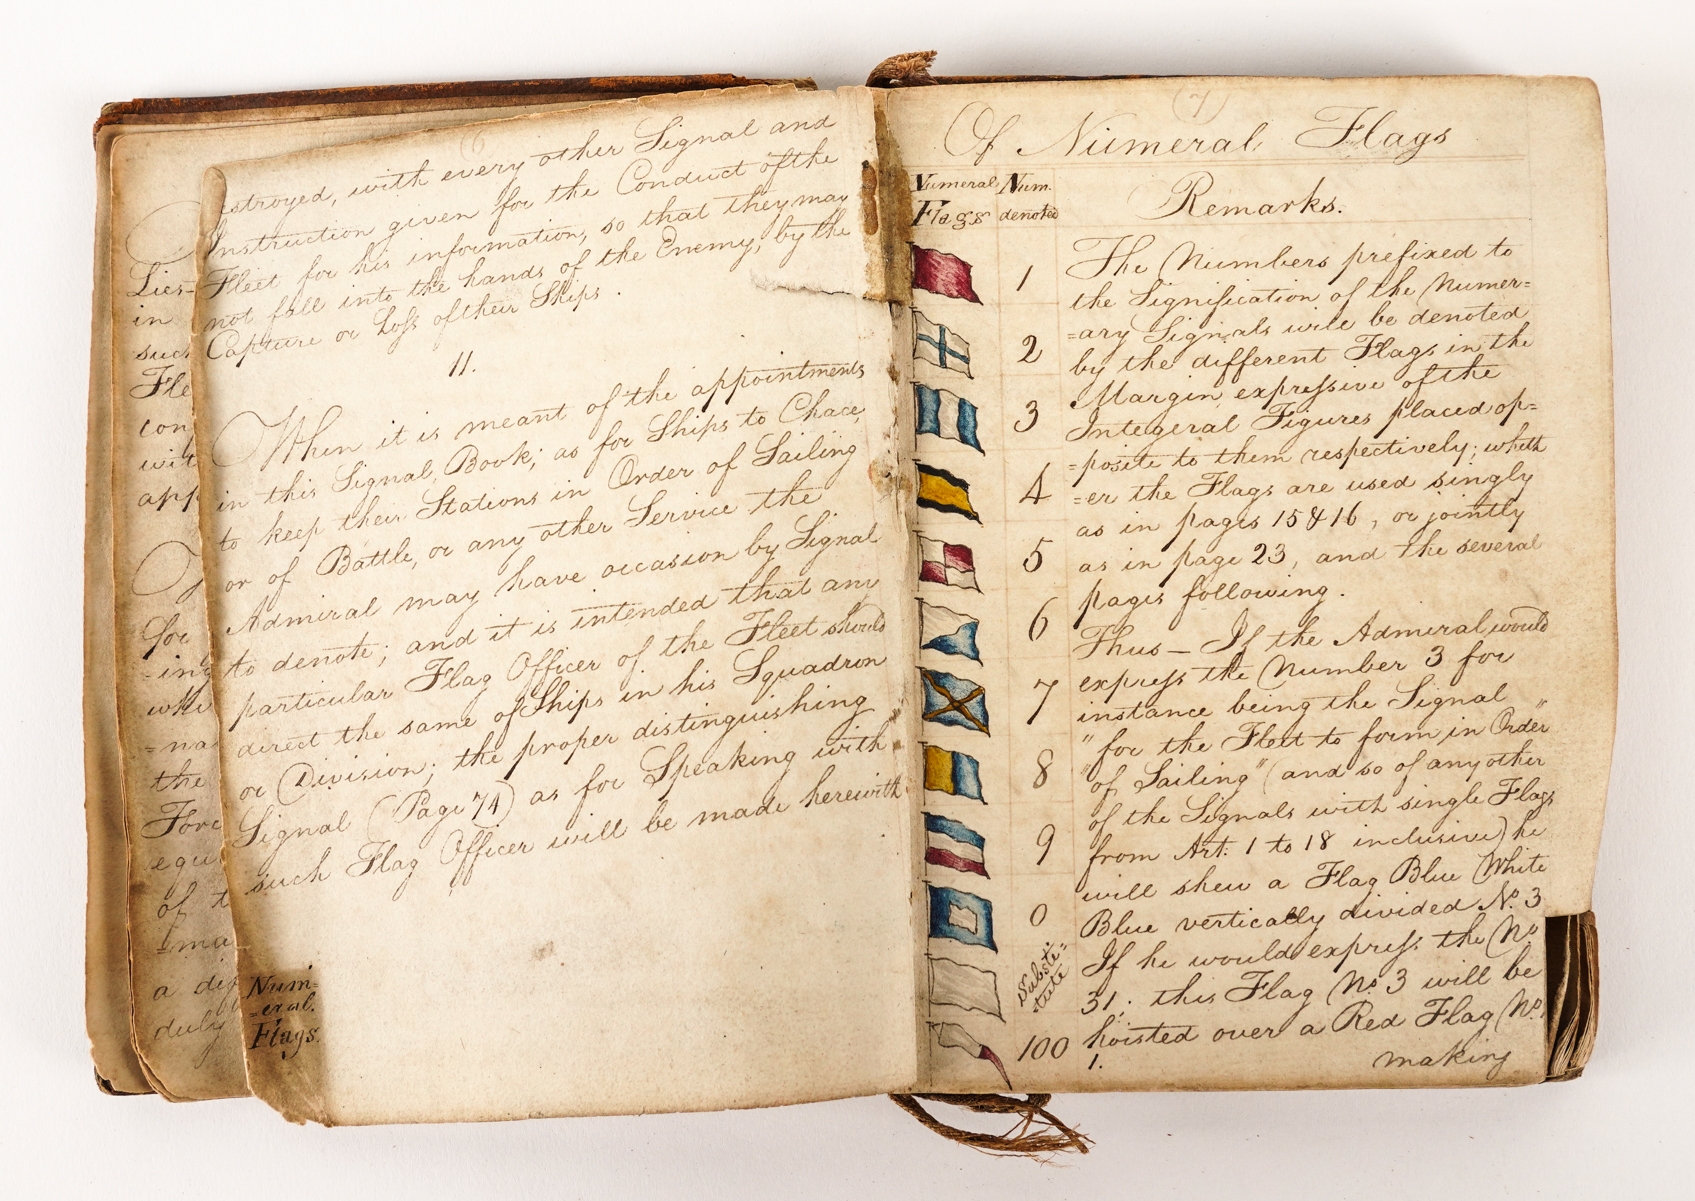 Lies-
in
such
Fle
con
wit
app
for
-ing
whi
=na
the
Forc
equ
of t
=ma
a dif
duly
Num-
=eral.
Flags.
estroyed, with every other Signal and
Instruction given for the Conduct of the
Fleet for his information, so that they may
not fall into the hands of the Enemy, by the
Capture or Loſs of their Ships.
11.
When it is meant of the appointments
in this Signal Book; as for Ships to Chace,
to keep their Stations in Order of Sailing
or of Battle, or any other Service the
Admiral may have occasion by Signal
to denote; and it is intended that any
particular Flag Officer of the Fleet should
direct the same of Ships in his Squadron
or Division; the proper distinguishing
Signal (Page 74) as for Speaking with
such Flag Officer will be made herewith
(7)
Of Numeral Flags
Numeral Num.
Flags denoted
Remarks.
1
2
3
4
5
6
7
8
9
0
Substi=
-tute
100
The Numbers prefixed to
the Signification of the Numer=
=ary Signals will be denoted
by the different Flags in the
Margin, expreſsive of the
Integeral Figures placed op=
=posite to them respectively; wheth
=er the Flags are used singly
as in pages 15 & 16, or jointly
as in page 23, and the several
pages following.
Thus — If the Admiral would
expreſs the Number 3 for
instance being the Signal
"for the Fleet to form in Order"
"of Sailing" (and so of any other
of the Signals with single Flags
from Art: 1 to 18 inclusive) he
will shew a Flag Blue White
Blue vertically divided No. 3
If he would expreſs the No
31; this Flag No 3 will be
hoisted over a Red Flag No.
1.
making